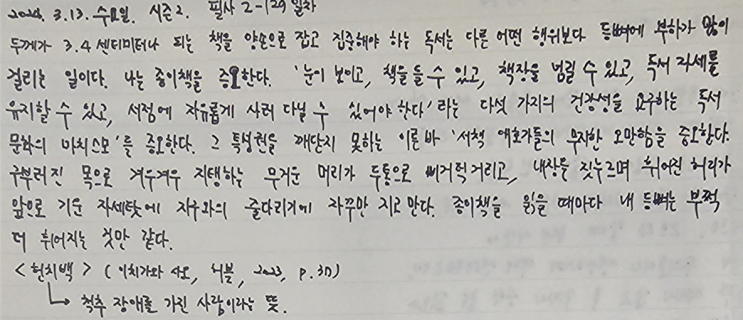 2024. 3. 13. 수요일. 시즌2. 필사 2-129일차
두께가 3.4 센티미터나 되는 책을 양손으로 잡고 집중해야 하는 독서는 다른 어떤 행위보다 등뼈에 부하가 많이
걸리는 일이다. 나는 종이책을 증오한다. '눈이 보이고, 책을 들 수 있고, 책장을 넘길 수 있고, 독서 자세를
유지할 수 있고, 서점에 자유롭게 사러 다닐 수 있어야 한다' 라는 다섯 가지의 건강성을 요구하는 독서
문화의 마치스모'를 증오한다. 그 특성권을 깨닫지 못하는 이른바 '서책 애호가들의 무지한 오만함을 증오한다.
구부러진 목으로 겨우겨우 지탱하는 무거운 머리가 두통으로 삐거덕거리고, 내장을 짓누르며 휘어진 허리가
앞으로 기운 자세탓에 지구와의 줄다리기에 자꾸만 지고 만다. 종이책을 읽을 때마다 내 등뼈는 부쩍
더 휘어지는 것만 같다.
<헌치백> (이치카와 사오, 허블, 2023, p.37)
↳ 척추 장애를 가진 사람이라는 뜻.